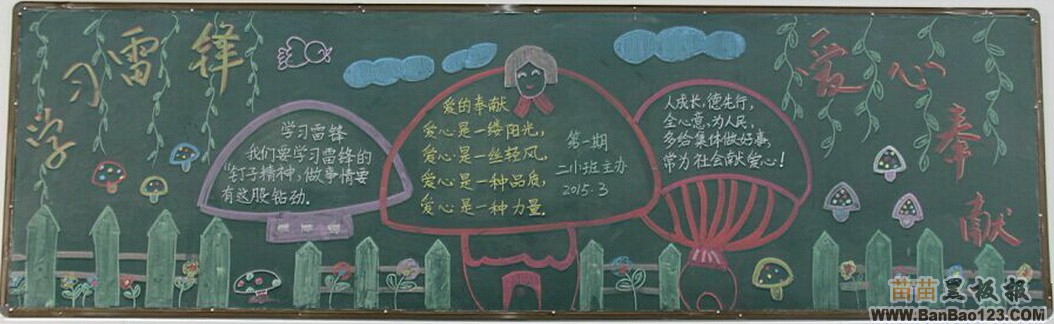 学习雷锋
爱心奉献
学习雷锋
我们要学习雷锋的
“钉子精神”,做事情要
有这股钻劲.
爱的奉献
爱心是一缕阳光,
爱心是一丝轻风,
爱心是一种品质,
爱心是一种力量.
第一期
二小班主办
2015.3
人成长,德先行,
全心意,为人民,
多给集体做好事,
常为社会献爱心!
苗苗黑板报
www.BanBao123.com